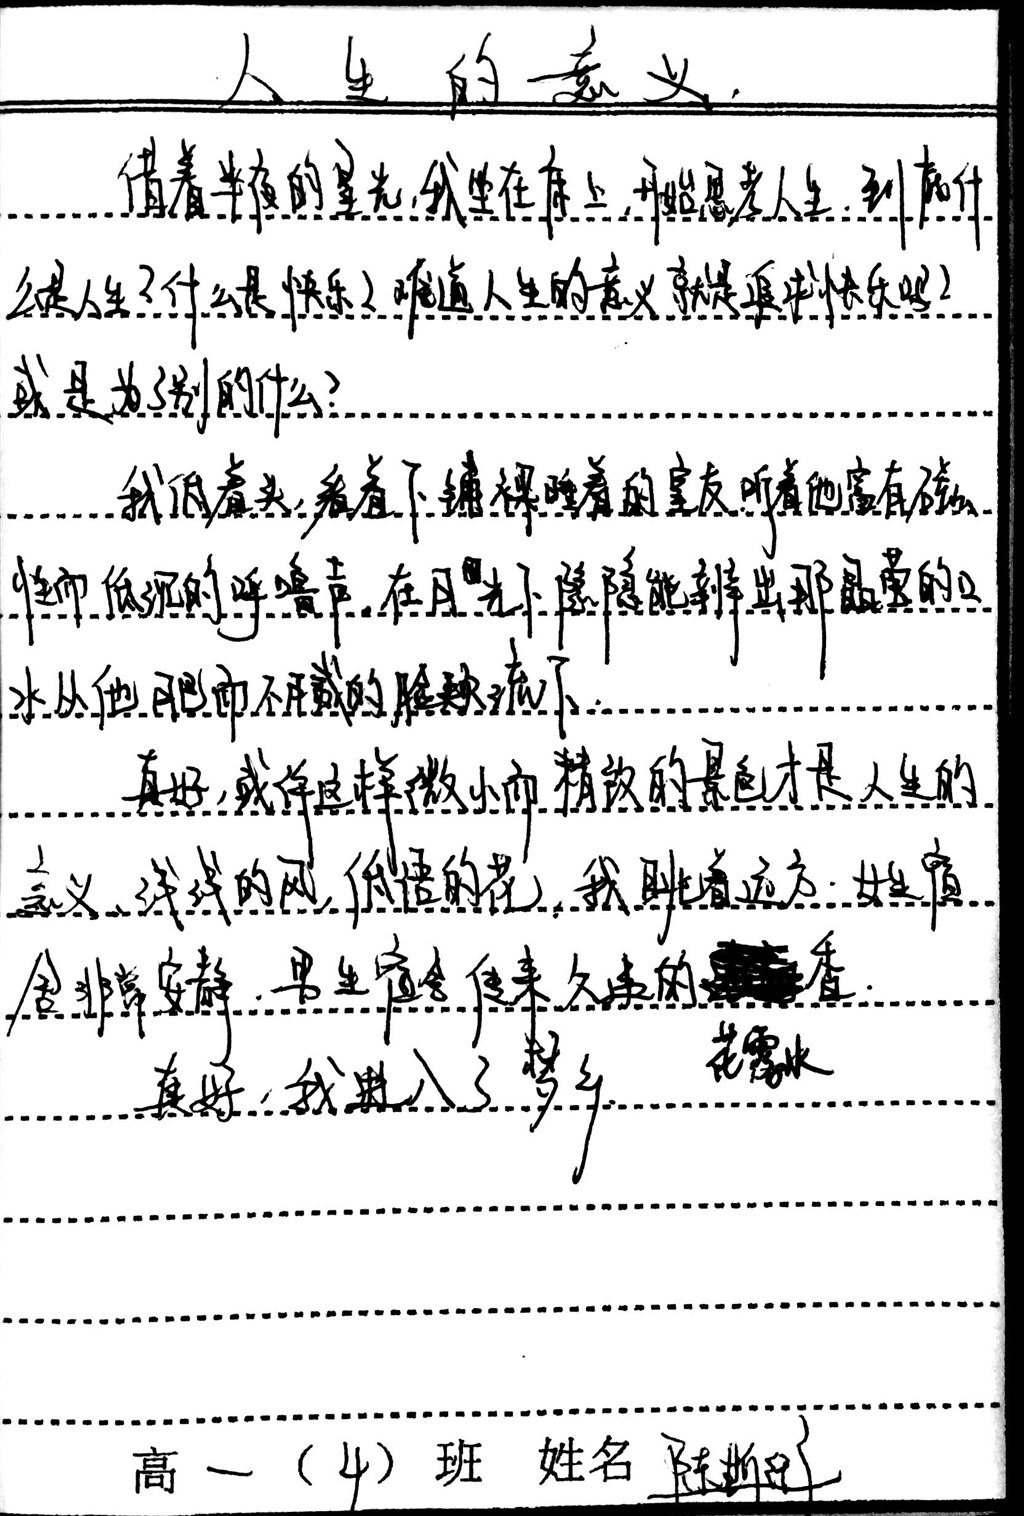 人生的意义.
借着半夜的星光,我坐在床上,开始思考人生.到底什
么是人生?什么是快乐?难道人生的意义就是追求快乐吗?
或是为了别的什么?
我低着头,看着下铺裸睡着的室友.听着他富有磁
性而低沉的呼噜声.在月光下隐隐能辨出那晶莹的口
水从他肥而不腻的脸颊流下.
真好,或许这样微小而精致的景色才是人生的
意义.浅浅的风,低语的花,我眺着远方.女生宿
舍非常安静.男生宿舍传来久违的花露水香.
真好,我进入了梦乡.
高一(4)班 姓名 陈